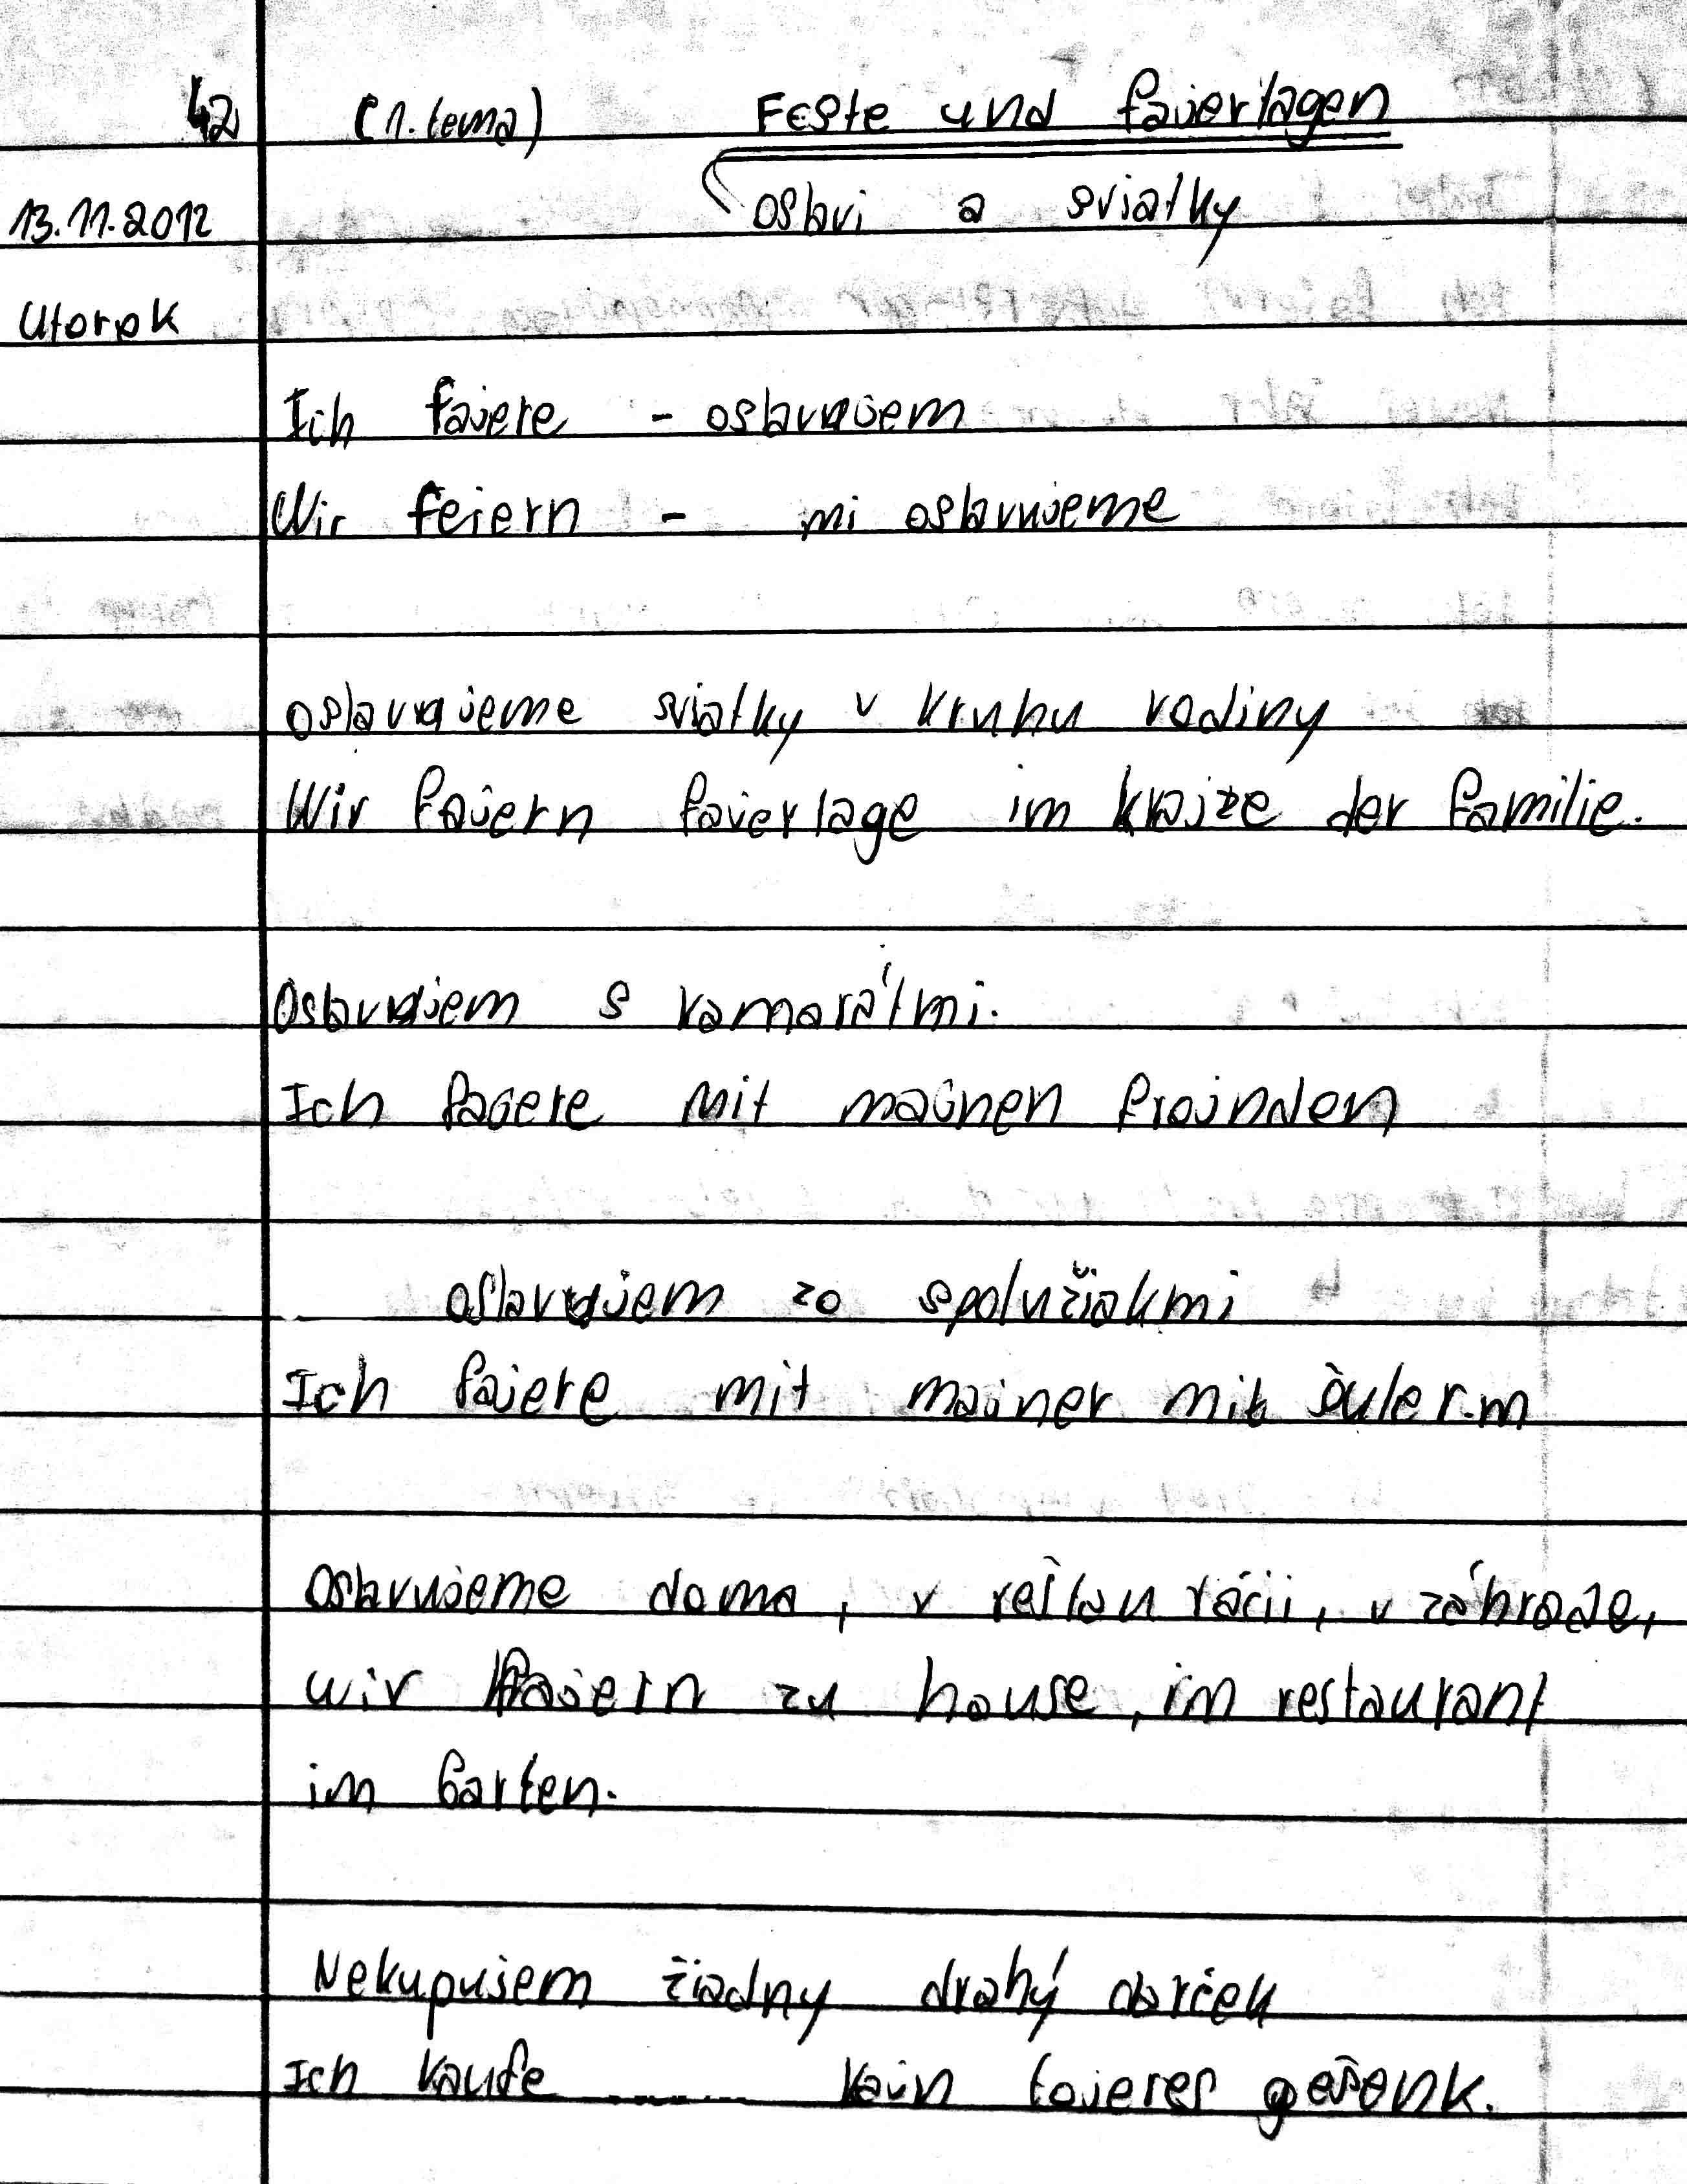 42 (1. tema) Feste und fajertagen
13.11.2012 oslavi a sviatky
Utorok
Ich fajere - oslavujem
Wir feiern - mi oslavujeme
oslavujeme sviatky v kruhu rodiny
Wir fajern fajertage im krajze der familie.
Oslavujem s kamarátmi.
Ich fajere mit majnen frojnden
oslavujem zo spolužiakmi
Ich fajere mit majner mit šuler.m
Oslavujeme doma, v reštaurácii, v záhrade,
wir fajern zu hause, im restaurant
im Garten.
Nekupujem žiadny drahý darček
Ich kaufe ........ kajn tojeres gešenk.